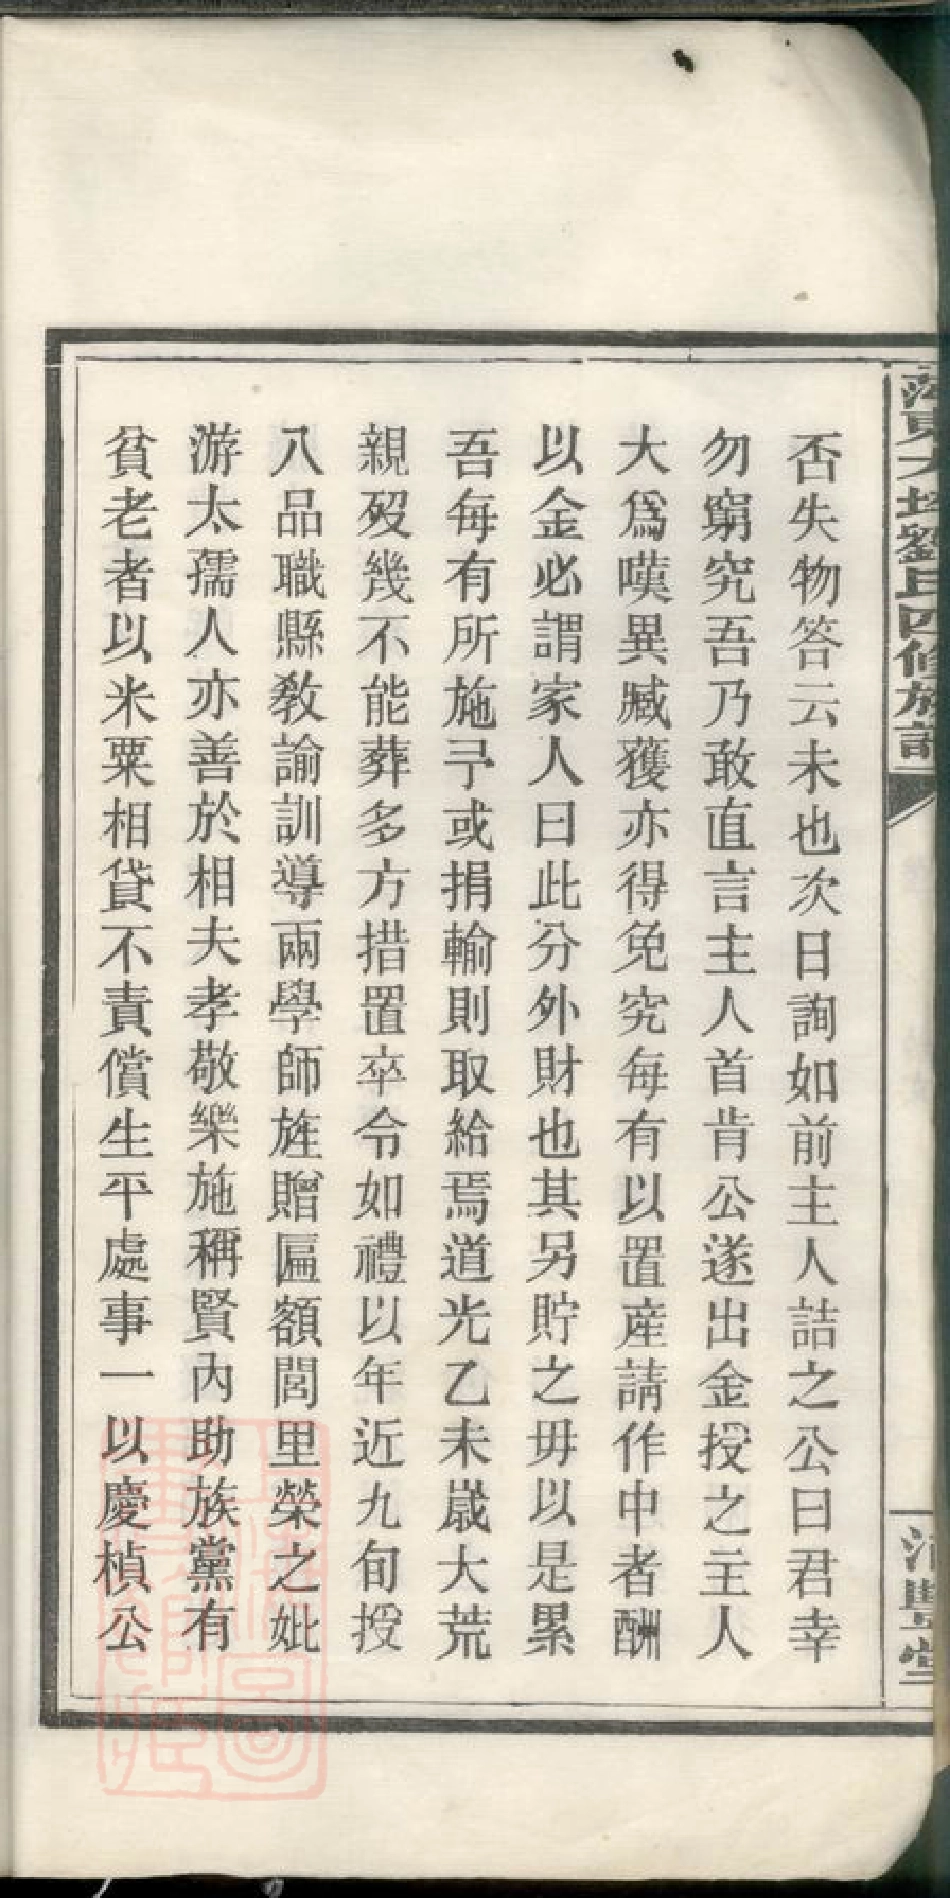 否失物答云未也次日詢如前主人詰之公曰君幸
勿窮究吾乃敢直言主人首肯公遂出金授之主人
大爲嘆異臧獲亦得免究每有以置產請作中者酬
以金必謂家人曰此分外財也其另貯之毋以是累
吾每有所施予或捐輸則取給焉道光乙未嵗大荒
親歿幾不能葬多方措置卒令如禮以年近九旬授
八品職縣教諭訓導兩學師旌贈匾額閭里榮之妣
游太孺人亦善於相夫孝敬樂施稱賢內助族黨有
貧老者以米粟相貸不責償生平處事一以慶楨公
東大 劉氏四修族譜
清豐堂